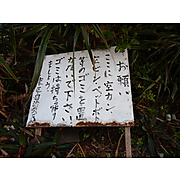 お願い
ここに空カン
空ビン、ペットボトル
等のゴミを置
かないで下さい
ゴミは持ち帰り
ましょう。